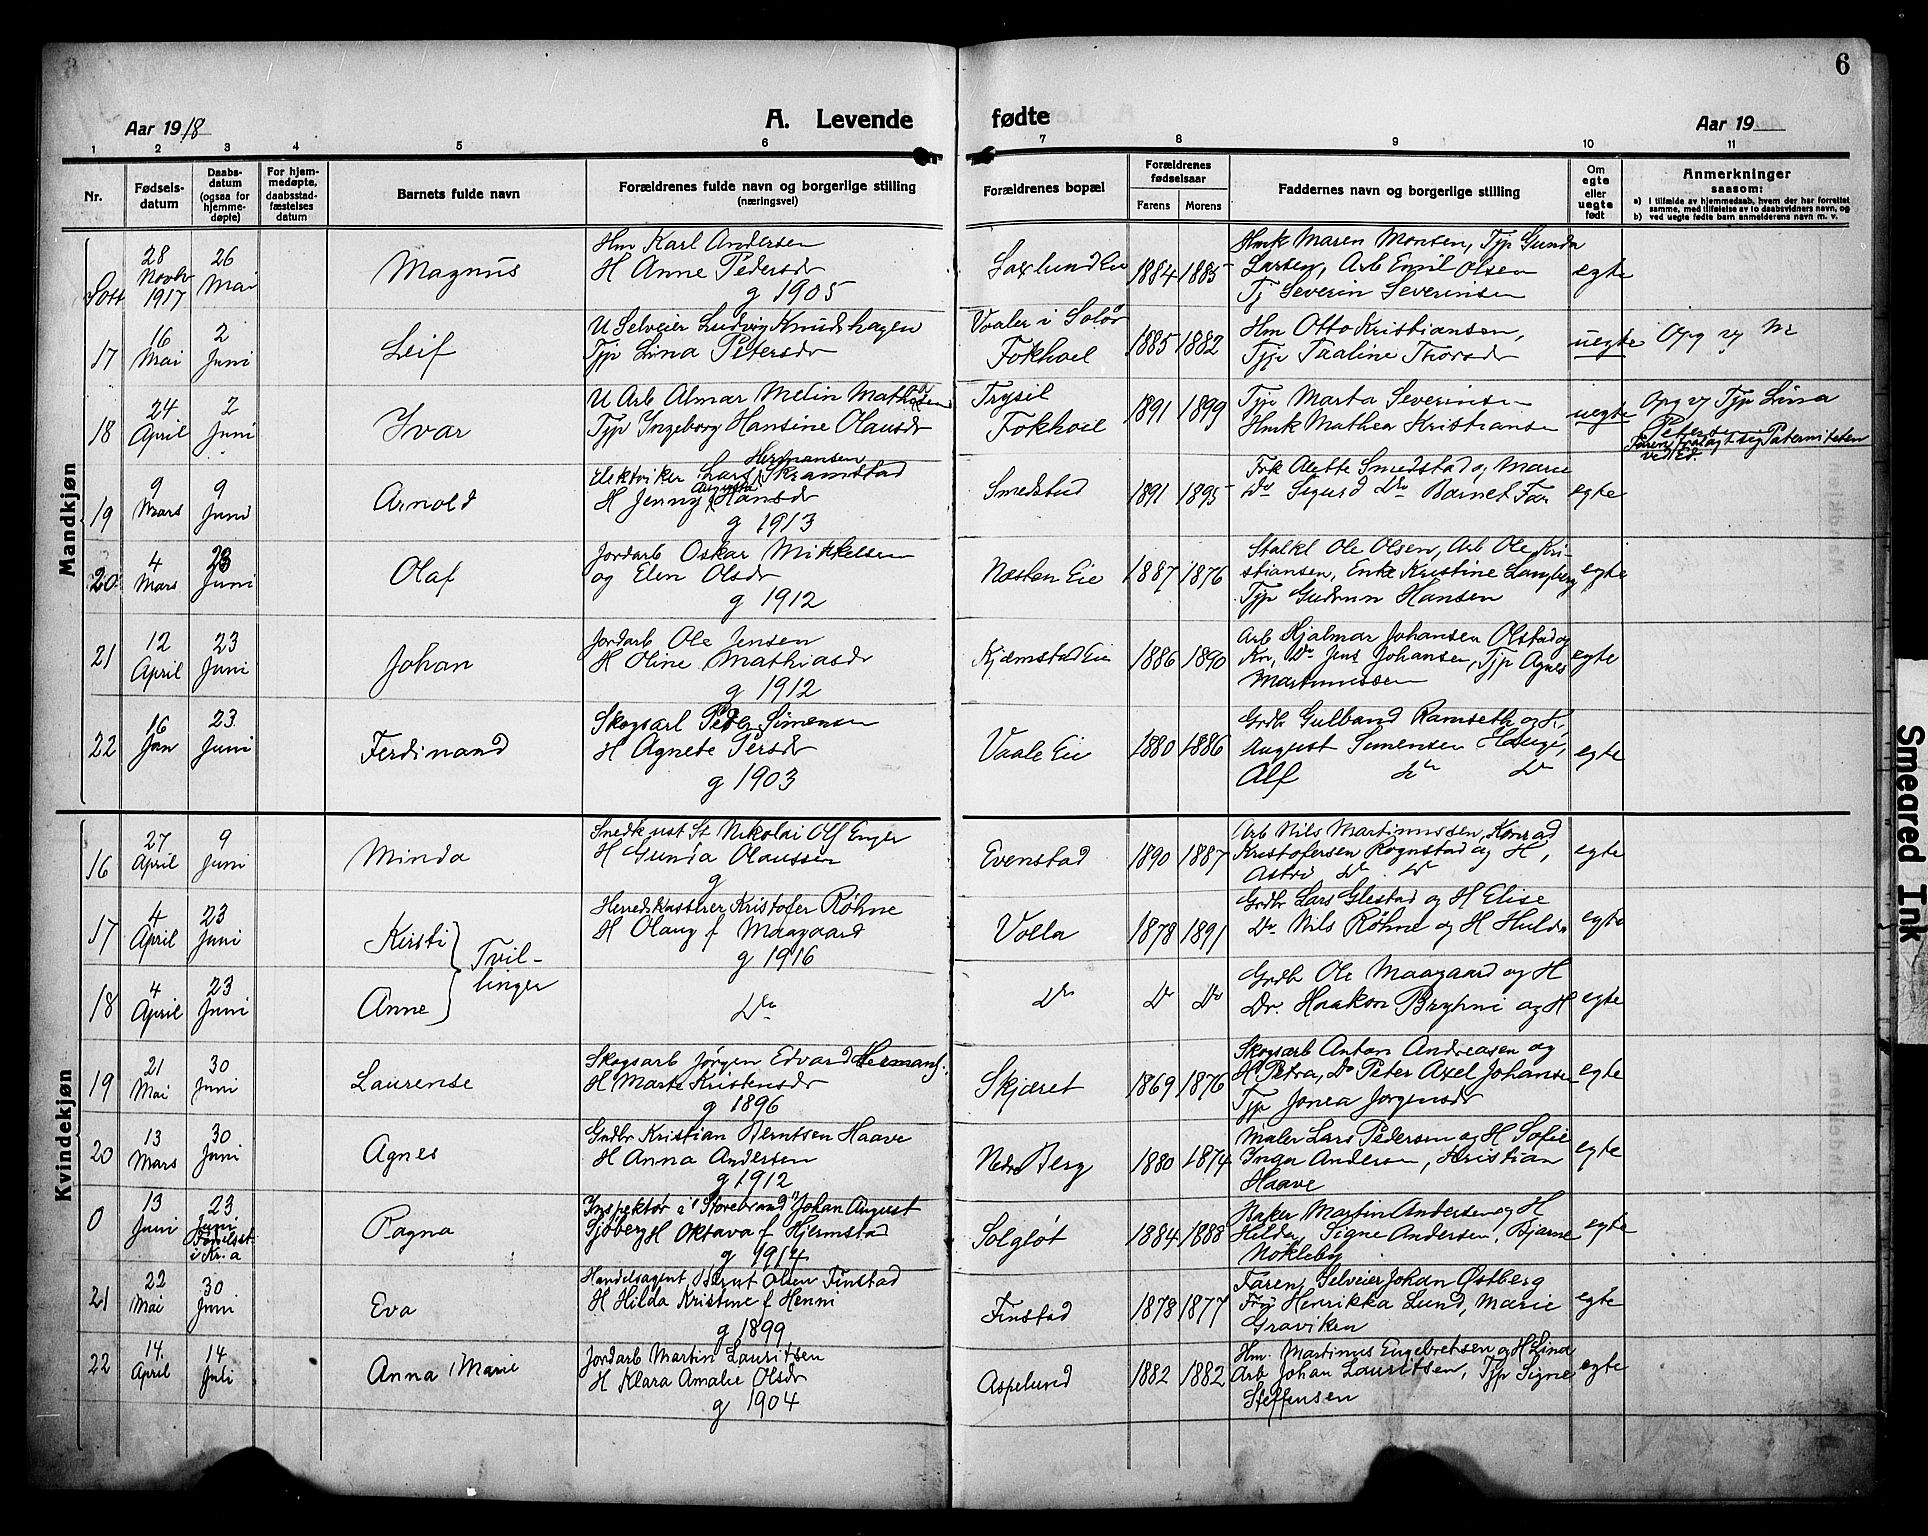 6
Aar 1918
A. Levende
fødte
Aar 19
1 2 3 4 5 6 7 8 9 10 11
Nr.
Fødsels-
datum
Daabs-
datum
(ogsaa for
hjemme-
døpte)
For hjem-
medøpte,
daabsstad-
fæstelses
datum
Barnets fulde navn
Forældrenes fulde navn og borgerlige stilling
(næringsvei)
Forældrenes bopæl
Forældrenes
fødselsaar
Farens Morens
Faddernes navn og borgerlige stilling
Om
egte
eller
uegte
født
Anmerkninger
saasom:
a) I tilfælde av hjemmedaab, hvem der har forrettet
samme, med tilføielse av to daabsvidners navn, og
b) ved uegte fødte barn anmelderens navn m. v.
Mandkjøn
28
Novbr
1917
26
Mai
Magnus
Hm Karl Andersen
H Anne Pedersdr
g 1905
Eie
1884 1885
Hmk Maren Monsen, Tjp Gunda
Larsen, Arb Emil Olsen
Tj Severin Severinsen
egte
17
16
Mai
2
Juni
Leif
U Selveier Ludvig Knudshagen
Tjp Lina Petersdr
Vaaler i Solør
Fokhoel
1885 1882
Hm Otto Kristiansen,
Tjp Paaline Thorsdr
uegte
Opg av M
18
24
April
2
Juni
Ivar
U Arb Almar Melin
Tjp Ingeborg Hansine Olausdr
Trysil
Fokhoel
1891 1899
Tjp Marta Severinsen
Hmk Mathea Kristiansen
uegte
Opg av Tjp Lina
Faren fralagt sig Paterniteten
ved Ed.
19
9
Mars
9
Juni
Arnold
Hermansen
Lars Skramstad
H Jenny Hansdr
g 1913
Smedstad
1891 1895
Frk Alette Smedstad og Marie
Do Sigurd Do Barnet Far
egte
20
4
Mars
23
Juni
Olaf
Jordarb Oskar Mikkelsen
og Elen Olsdr
g 1912
Næsten Eie
1887 1876
Ole Olsen, Arb Ole Kri-
stiansen, Enke Kristine Langberg
Tjp Gudrun Hansen
egte
21
12
April
23
Juni
Johan
Jordarb Ole Jensen
H Oline Mathiasdr
g 1912
Kjæmstad Eie
1886 1890
Arb Hjalmar Johansen Olstad og
Kn, Do Jens Johansen, Tjp Agnes
Martinussen
egte
22
16
Jan
23
Juni
Ferdinand
Skogsarb Peder Simensen
H Agnete Persdr
g 1903
Vaale Eie
1880 1886
Grdbr Gulbrand Ramseth og H,
August Simensen Hauge,
Alf Do Do
egte
Kvindekjøn
16
27
April
9
Juni
Minda
Nikolai Enger
H Gunda Olaussen
g
Evenstad
1890 1887
Arb Nils Martinussen, Konrad
Kristofersen Rognstad og H,
Astri Do Do
egte
17
4
April
23
Juni
Kirsti
Tvil-
linger
Herredskasserer Kristofer Røhne
H Olaug f Maagaard
g 1916
Volla
1878 1891
Grdbr Lars Glestad og H Elise
Do Nils Røhne og H Hulda
egte
18
4
April
23
Juni
Anne
Do
Do
Do Do
Grdbr Ole Maagaard og H
Do. Haakon Bryhni og H
egte
19
21
Mai
30
Juni
Laurense
Skogsarb Jørgen Edvard Hermans.
H Marte Kristensdr
g 1896
Skjæret
1869 1876
Skogsarb Anton Andreasen og
H Petra, Do Peter Axel Johansen
Tjp Jonea Jørgensdr
egte
20
13
Mars
30
Juni
Agnes
Grdbr Kristian Berntsen Haave
H Anna Andersen
g 1912
Nedre Berg
1880 1874
Maler Lars Pedersen og H Sofie
Inga Andersen, Kristian
Haave
egte
0
13
Juni
23
Juni
Fødselsst
i Kr.a
Ragna
Inspektør i "Storebrand" Johan August
Sjøberg H Oktava f Hjermstad
g 1914
Solgløt
1884 1888
Baker Martin Andersen og H
Helda, Signe Andersen, Bjarne
Nökleby
egte
21
22
Mai
30
Juni
Eva
Handelsagent, Bernt Olsen Finstad
H Hilda Kristine f Henni
g 1899
Finstad
1878 1877
Faren, Selveier Johan Østberg
Frø Henrikka Lund, Marie
Graviken
egte
22
14.
April
14
Juli
Anna Marie
Jordarb Martin Lauritsen
H Klara Amalie Olsdr
g 1904
Aspelund
1882 1882
Hm. Martinus Engebretsen og H Lina
Arb Johan Lauritsen, Tjp Signe
Steffensen
egte
Smeared Ink